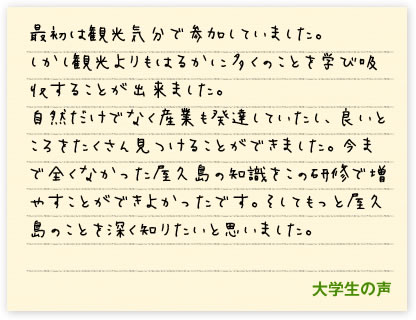 最初は観光気分で参加していました。
しかし観光よりもはるかに多くのことを学び吸
収することが出来ました。
自然だけでなく産業も発達していたし、良いと
ころをたくさん見つけることができました。今ま
で全くなかった屋久島の知識をこの研修で増
やすことができよかったです。そしてもっと屋久
島のことを深く知りたいと思いました。
大学生の声